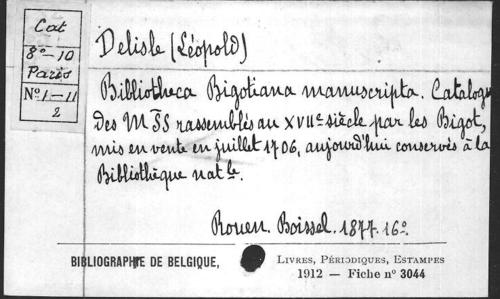 Cat
8º-10
Paris
Nº1-11
2
Delisle (Léopold)
Bibliotheca Bigotiana manuscripta. Catalogue
des MSS rassemblés au XVIIe siècle par les Bigot,
mis en vente en juillet 1706, aujourd'hui conservés à la
Bibliothèque natle.
Rouen. Boissel. 1877. 16º.
BIBLIOGRAPHIE DE BELGIQUE,
LIVRES, PÉRIODIQUES, ESTAMPES
1912 — Fiche nº 3044